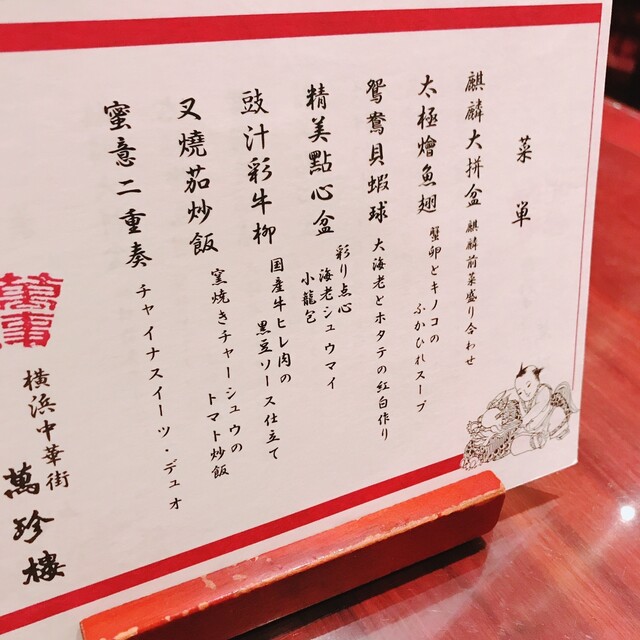 菜単
麒麟大拼盆
麒麟前菜盛り合わせ
太極燴魚翅
蟹卵とキノコの
ふかひれスープ
鴛鴦貝蝦球
大海老とホタテの紅白作り
精美點心盆
彩り点心
海老シュウマイ
小籠包
豉汁彩牛柳
国産牛ヒレ肉の
黒豆ソース仕立て
叉燒茄炒飯
窯焼きチャーシュウの
トマト炒飯
蜜意二重奏
チャイナスイーツ・デュオ
横浜中華街
萬珍樓